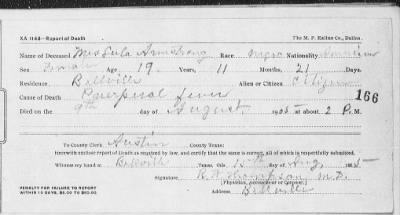 XA 1148—Report of Death The M. P. Exline Co., Dallas.
Name of Deceased Mrs Lula Armstrong Race Negro Nationality American
Sex Female Age 19 Years, 11 Months, 21 Days.
Residence Bellville Alien or Citizen Citizen
Cause of Death Puerperal fever 166
Died on the 9th day of August 1905 at about 2 P. M.
To County Clerk Austin County Texas:
I herewith enclose Report of Death as required by law, and certify that the same is correct, all of which is respectfully submitted.
Witness my hand at Bellville Texas, this 15th day of Aug
Signature Thompson M.D.
[Physician, Accoucheur or Coroner.]
PENALTY FOR FAILURE TO REPORT
WITHIN 10 DAYS, $5.00 TO $50.00. Address Bellville